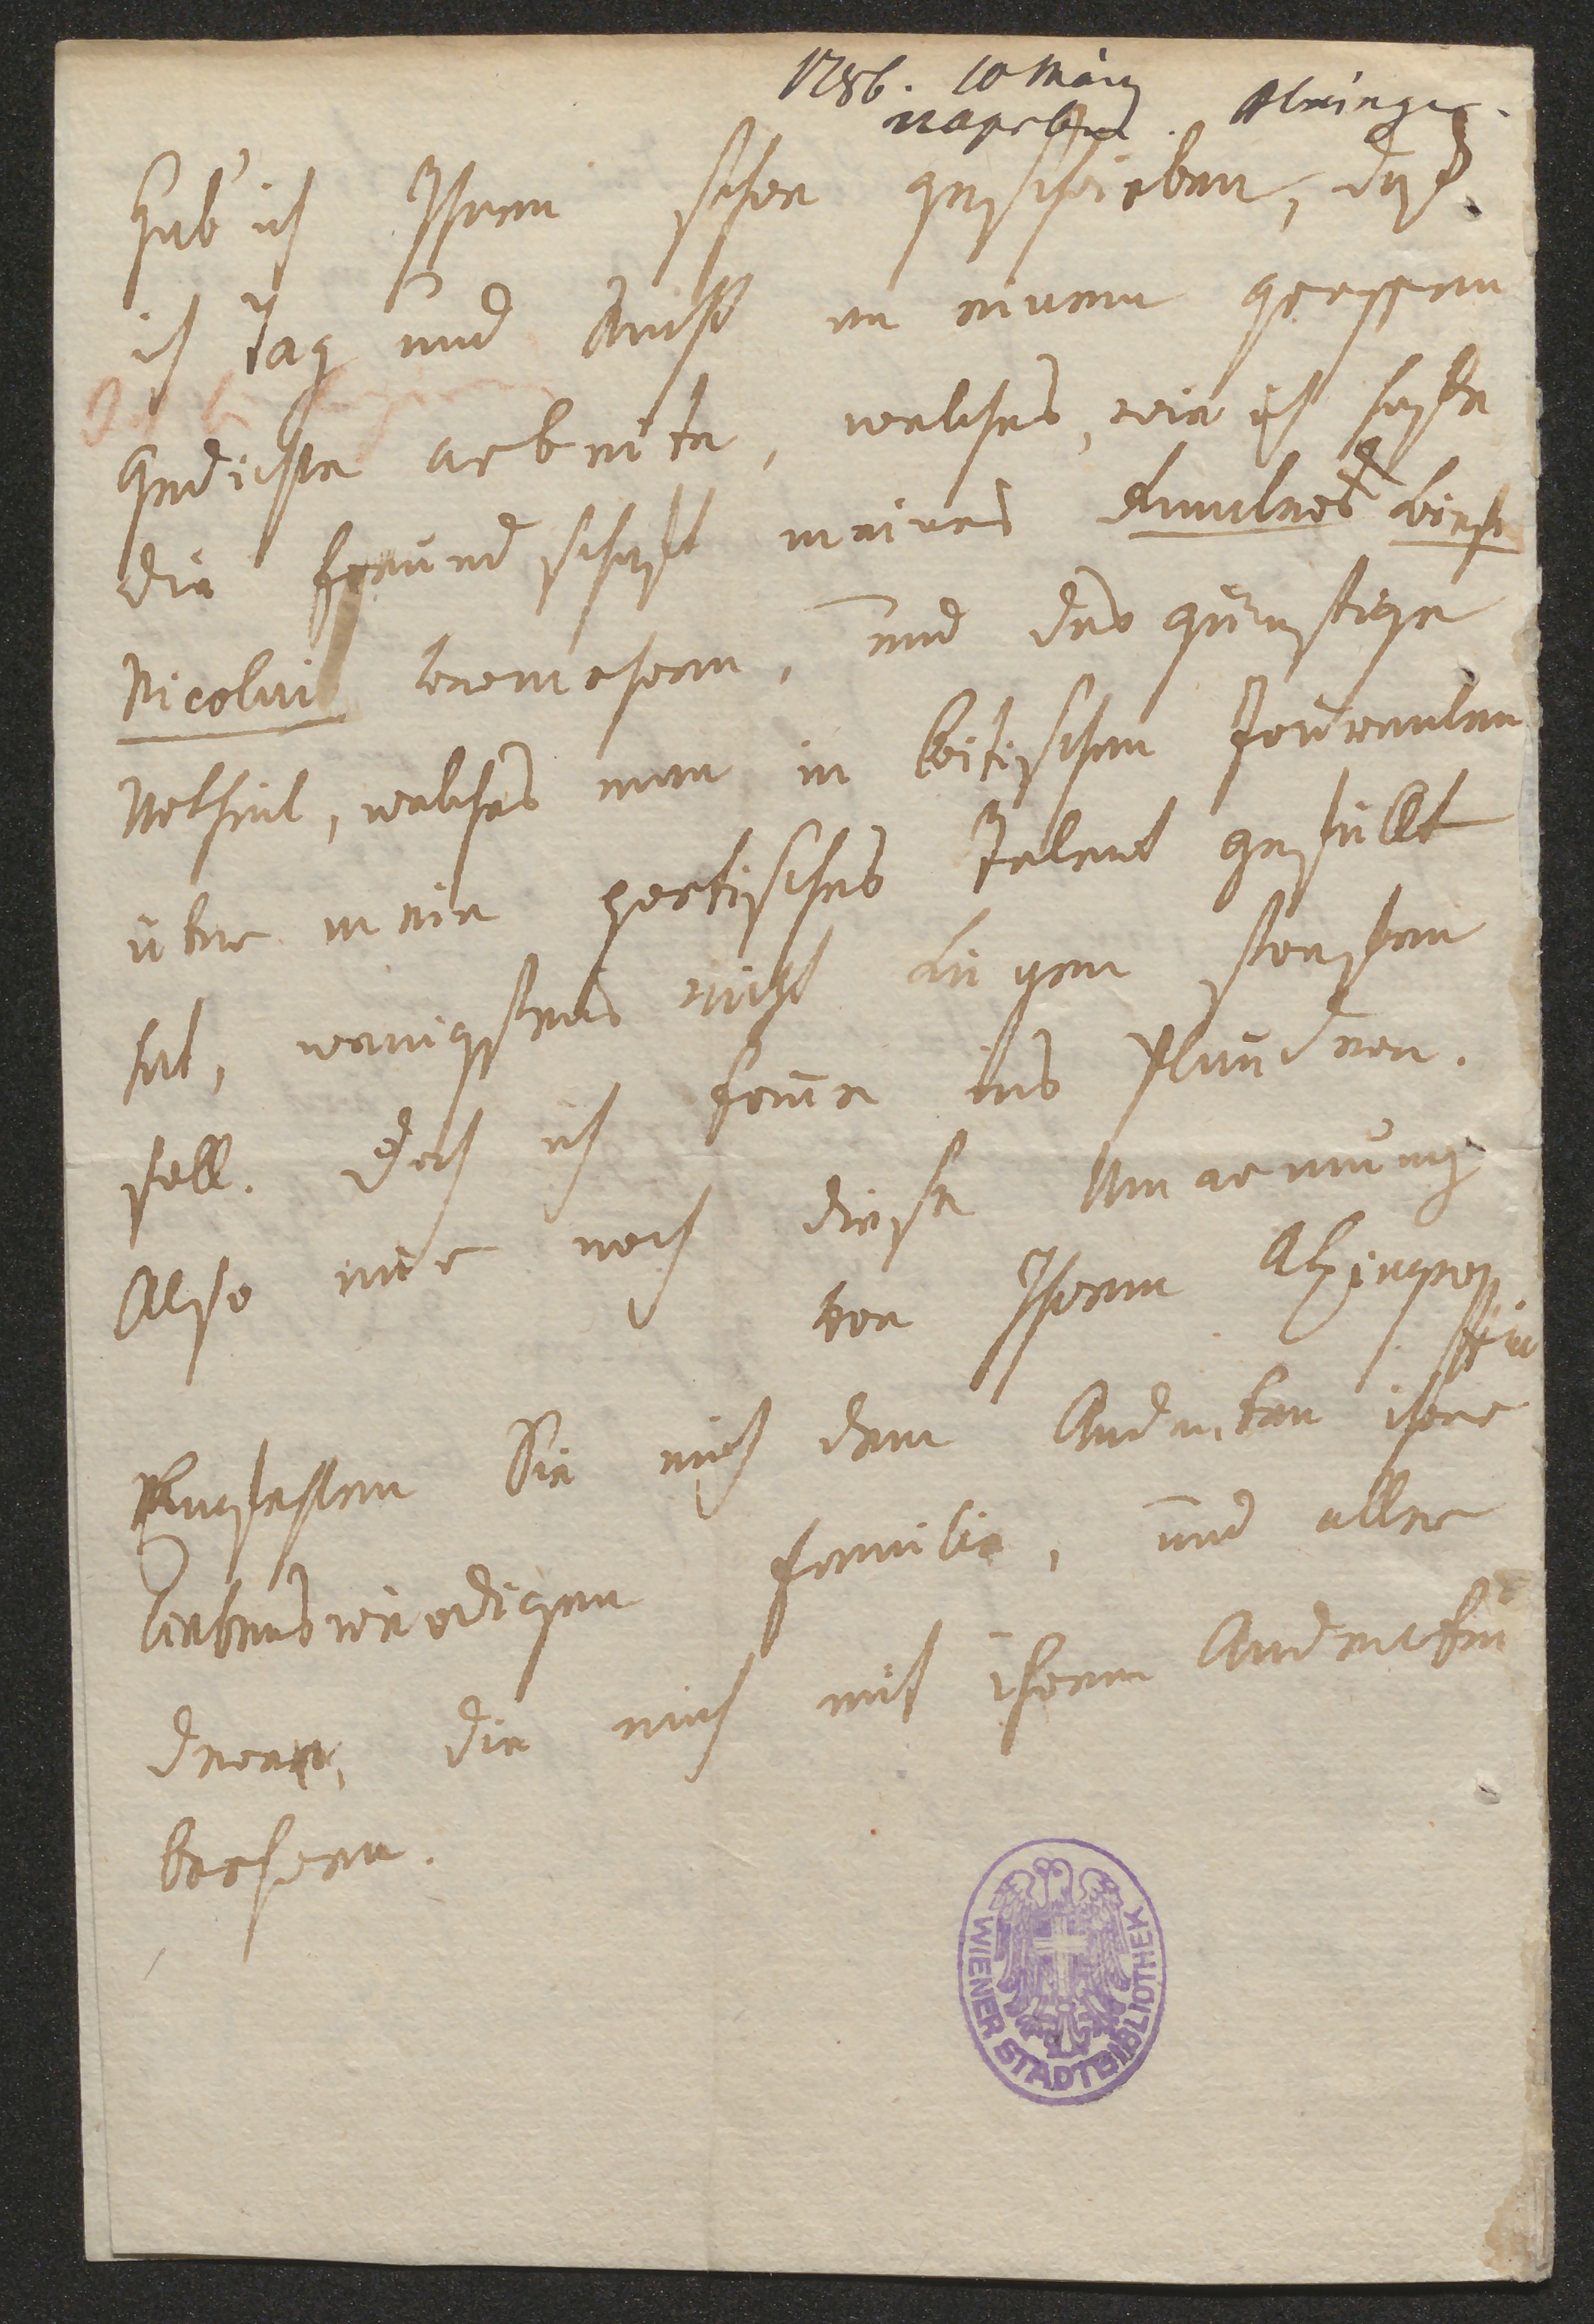 1786. 10 März
Alxinger.
Hab' ich Ihnen schon geschrieben, daß
ich Tag und Nacht an einem grossen
Gedichte arbeite, welches, wie ich hoffe
die Freundschaft meines Ramlers Biest
Nicolai vermehren, und das günstige
Urtheil, welches man in kritischen Journalen
über mein poetisches Talent gefällt
hat, wenigstens nicht Lügen strafen
soll. Doch ich kome ins Plaudern.
Also nur noch diese Umarmung
von Ihrem Alxinger
Empfehlen Sie mich dem Andenken ihrer
liebenswürdigen Familie, und aller
deren, die mich mit ihrem Andenken
beehren.
WIENER STADTBIBLIOTHEK